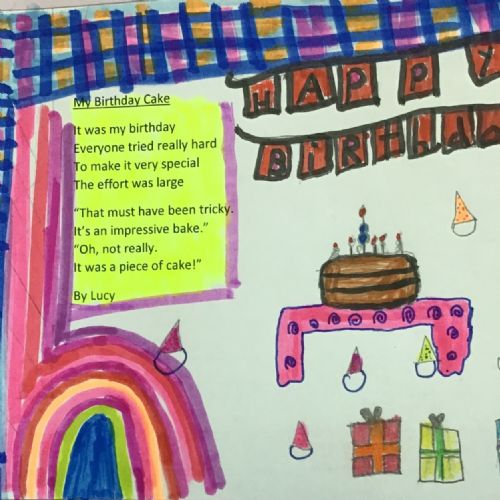 HAPPY
BiRthda
My Birthday Cake
It was my birthday
Everyone tried really hard
To make it very special
The effort was large
“That must have been tricky.
It’s an impressive bake.”
“Oh, not really.
It was a piece of cake!”
By Lucy